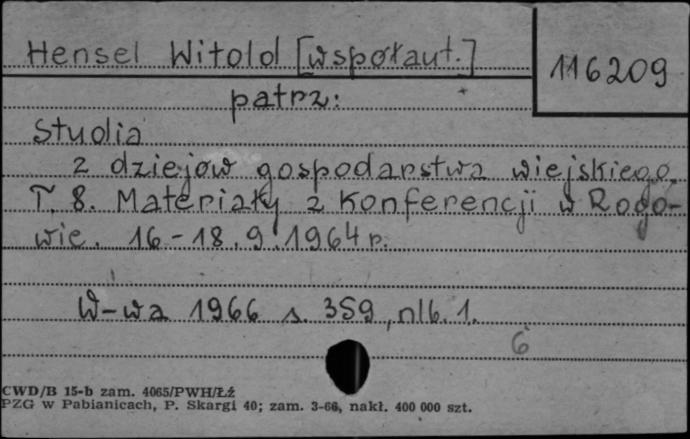 Hensel Witold [współaut.]
116209
patrz:
Studia
z dziejów gospodarstwa wiejskiego.
T. 8. Materiały z Konferencji w Rogo-
wie. 16-18.9.1964 r.
W-wa 1966 s. 359, nlb. 1.
6
CWD/B 15-b zam. 4065/PWH/Łź
PZG w Pabianicach, P. Skargi 40; zam. 3-66, nakł. 400 000 szt.